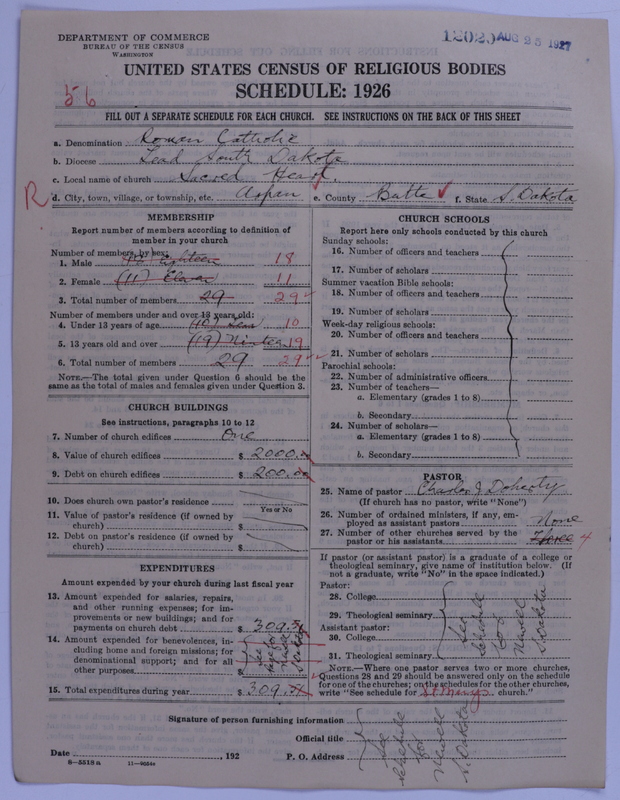 DEPARTMENT OF COMMERCE
BUREAU OF THE CENSUS
WASHINGTON
12020 AUG 25 1927
UNITED STATES CENSUS OF RELIGIOUS BODIES
SCHEDULE: 1926
56
FILL OUT A SEPARATE SCHEDULE FOR EACH CHURCH. SEE INSTRUCTIONS ON THE BACK OF THIS SHEET
a. Denomination Roman Catholic
b. Diocese Lead South Dakota
c. Local name of church Sacred Heart.
R d. City, town, village, or township, etc. e. County Butte f. State S. Dakota
MEMBERSHIP
Report number of members according to definition of
member in your church
Number of members by sex:
1. Male Eighteen 18
2. Female (11) Eleven 11
3. Total number of members 29 29
Number of members under and over 13 years old:
4. Under 13 years of age (10) 10
5. 13 years old and over (19) Nineteen 19
6. Total number of members 29 29
NOTE.—The total given under Question 6 should be the
same as the total of males and females given under Question 3.
CHURCH BUILDINGS
See instructions, paragraphs 10 to 12
7. Number of church edifices One
8. Value of church edifices $ 2000.00
9. Debt on church edifices $ 200.00
10. Does church own pastor's residence
Yes or No
11. Value of pastor's residence (if owned by
church) $
12. Debt on pastor's residence (if owned by
church) $
EXPENDITURES
Amount expended by your church during last fiscal year
13. Amount expended for salaries, repairs,
and other running expenses; for im-
provements or new buildings; and for
payments on church debt $ 309.
14. Amount expended for benevolences, in-
cluding home and foreign missions; for
denominational support; and for all
other purposes $
15. Total expenditures during year $ 309.
CHURCH SCHOOLS
Report here only schools conducted by this church
Sunday schools:
16. Number of officers and teachers
17. Number of scholars
Summer vacation Bible schools:
18. Number of officers and teachers
19. Number of scholars
Week-day religious schools:
20. Number of officers and teachers
21. Number of scholars
Parochial schools:
22. Number of administrative officers
23. Number of teachers—
a. Elementary (grades 1 to 8)
b. Secondary
24. Number of scholars—
a. Elementary (grades 1 to 8)
b. Secondary
PASTOR
25. Name of pastor Charles J Doherty
(If church has no pastor, write "None")
26. Number of ordained ministers, if any, em-
ployed as assistant pastors None
27. Number of other churches served by the
pastor or his assistants Three 4
If pastor (or assistant pastor) is a graduate of a college or
theological seminary, give name of institution below. (If
not a graduate, write "No" in the space indicated.)
Pastor:
28. College
29. Theological seminary
Assistant pastor:
30. College
31. Theological seminary
See
Schedule
for
Newell
S. Dakota
NOTE.—Where one pastor serves two or more churches,
Questions 28 and 29 should be answered only on the schedule
for one of the churches; on the schedules for the other churches,
write "See schedule for St Marys church."
Signature of person furnishing information
Official title
Date , 192 P. O. Address
See
Schedule
for
Newell
S. Dakota
8—5518 a